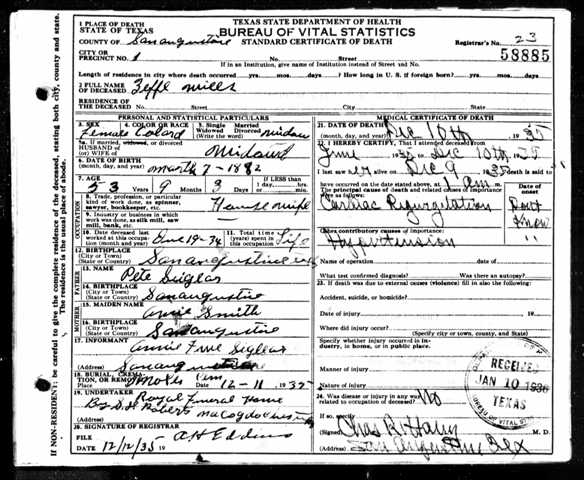 TEXAS STATE DEPARTMENT OF HEALTH
BUREAU OF VITAL STATISTICS
STANDARD CERTIFICATE OF DEATH
1 PLACE OF DEATH
STATE OF TEXAS
COUNTY OF San augustine
Registrar's No. 23
58885
CITY OR
PRECINCT NO. 1 No. Street
If in an Institution, give name of Institution instead of Street and No.
Length of residence in city where death occurred yrs. mos. days ? How long in U. S. if foreign born? yrs. mos. days
2 FULL NAME
OF DECEASED Zeffe Mills
RESIDENCE OF
THE DECEASED No. Street City State
PERSONAL AND STATISTICAL PARTICULARS
3. SEX 4. COLOR OR RACE 5. Single Married
Widowed Divorced
(Write the word)
Female Colard widow
5a. If married, widowed, or divorced
HUSBAND OF
(or) WIFE OF
6. DATE OF BIRTH
(month, day, and year) march 7 - 1882
7. AGE If LESS than
1 day, hrs.
or min.
53 Years 9 3 Days
8. Trade, profession, or particular
kind of work done, as spinner,
sawyer, bookkeeper, etc. House wife
9. Industry or business in which
work was done, as silk mill, saw
mill, bank, etc.
10. Date deceased last
worked at this occupation
(month and year)
11. Total time
(years) spent in
this occupation Life
OCCUPATION
12. BIRTHPLACE
(City or Town)
(State or Country) San augustine
13. NAME
Pete Siglar
14. BIRTHPLACE
(City or Town)
(State or Country) San augustine
FATHER
15. MAIDEN NAME
Smith
16. BIRTHPLACE
(City or Town)
(State or Country) San augustine
MOTHER
17. INFORMANT
annie
(Address) San augustine
18. BURIAL, CREMATION, OR REMOVAL
Place Date 12 - 11 1935
19. UNDERTAKER Royal Funeral Home
(Address) Roberts
20. SIGNATURE OF REGISTRAR
FILE
DATE 12/12/35 19 A H Eddins
MEDICAL CERTIFICATE OF DEATH
21. DATE OF DEATH
(month, day, and year) Dec 10th, 1935
22. I HEREBY CERTIFY, That I attended deceased from
June 1935 to Dec 10th, 35
I last saw her alive on Dec 9 1935 death is said to
have occurred on the date stated above, at am.
The principal cause of death and related causes of importance
were as follows:
Date of
onset
Cardiac Regurgitation Dont
Know
Other contributory causes of importance:
Hypertension "
Name of operation date of
What test confirmed diagnosis? Was there an autopsy?
23. If death was due to external causes (violence) fill in also the following:
Accident, suicide, or homicide?
Date of injury 19
Where did injury occur?
(Specify city or town, county, and State)
Specify whether injury occurred in industry, in home, or in public place.
Manner of injury
Nature of injury
24. Was disease or injury in any way
related to occupation of deceased? No
If so, specify
(Signed) Chas R. Haley M. D.
(Address) San Augustine Tex
RECEIVED
JAN 10 1936
TEXAS
BUREAU OF VITAL ST
If NON-RESIDENT: be careful to give the complete residence of the deceased, stating both city, county and state.
The residence is the usual place of abode.